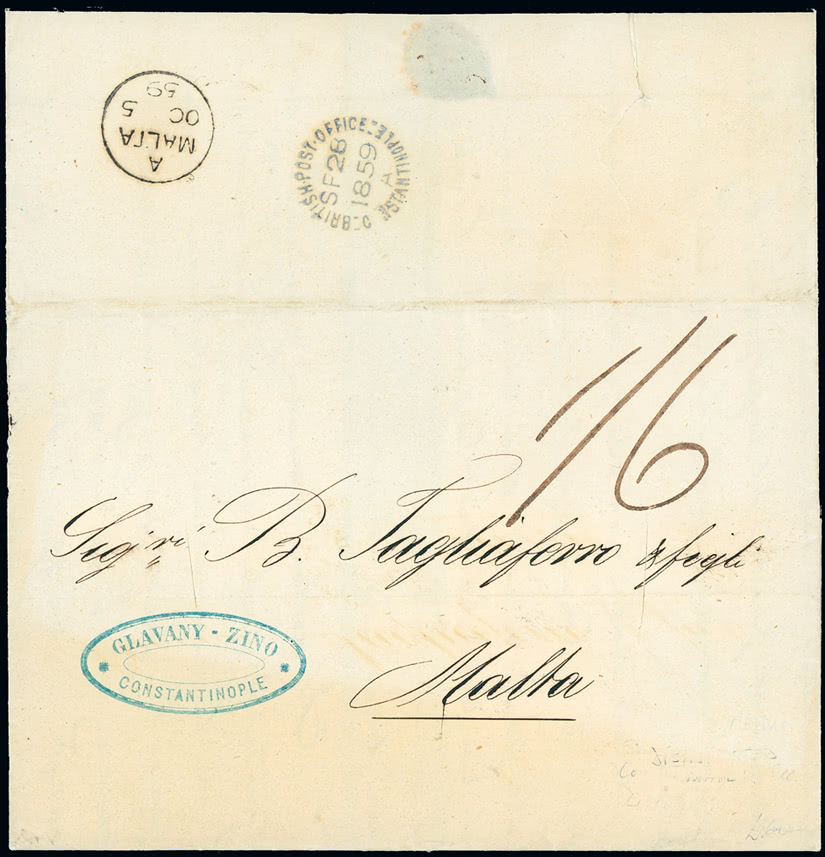 A
MALTA
OC 5
59
BRITISH·POST·OFFICE
SF 28
1859
A
16
Sig'ri B. Tagliaferro & figli
GLAVANY - ZINO
CONSTANTINOPLE
Malta